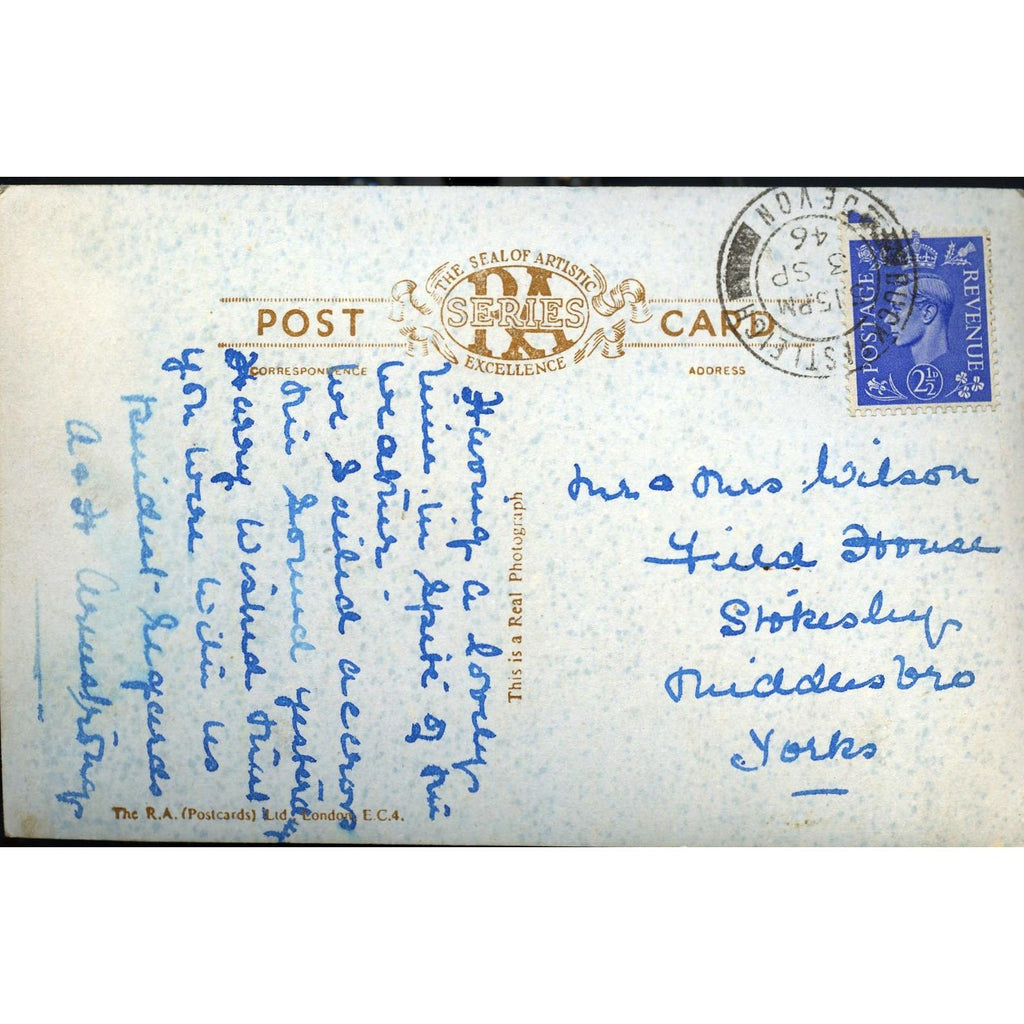 THE SEAL OF ARTISTIC
RA
SERIES
EXCELLENCE
POST CARD
CORRESPONDENCE
ADDRESS
Having a lovely
time in spite of the
weather
We sailed accross
the Sound yesterday
Harry wished that
you were with us
kindest regards
A & H Armstrong
This is a Real Photograph
The R.A. (Postcards) Ltd. London, E.C.4.
DEVON
3 SP
46
POSTAGE
REVENUE
2½D
Mr & Mrs Wilson
Field House
Stokesley
Middlesbro
Yorks